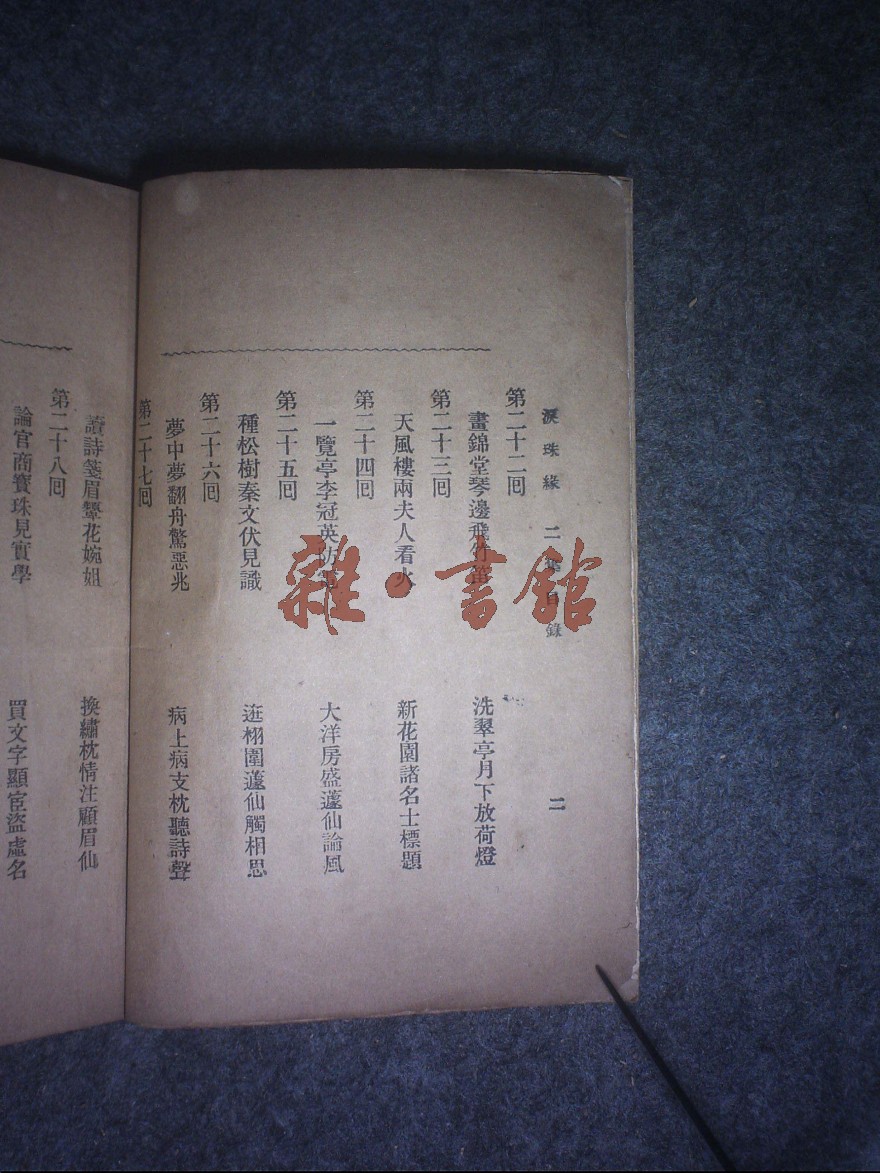 淚珠緣 二集目錄 二
第二十二回
畫錦堂琴邊飛竹笛 洗翠亭月下放荷燈
第二十三回
天風樓兩夫人看火 新花園諸名士標題
第二十四回
一覽亭李冠英防電 大洋房盛蘧仙論風
第二十五回
種松樹秦文伏見識 逛栩園蘧仙觸相思
第二十六回
夢中夢翻舟驚惡兆 病上病支枕聽詩聲
第二十七回
讀詩箋眉顰花婉姐 換繡枕情注顧眉仙
第二十八回
論官商寶珠見實學 買文字顯宦盜虛名
雜·書館